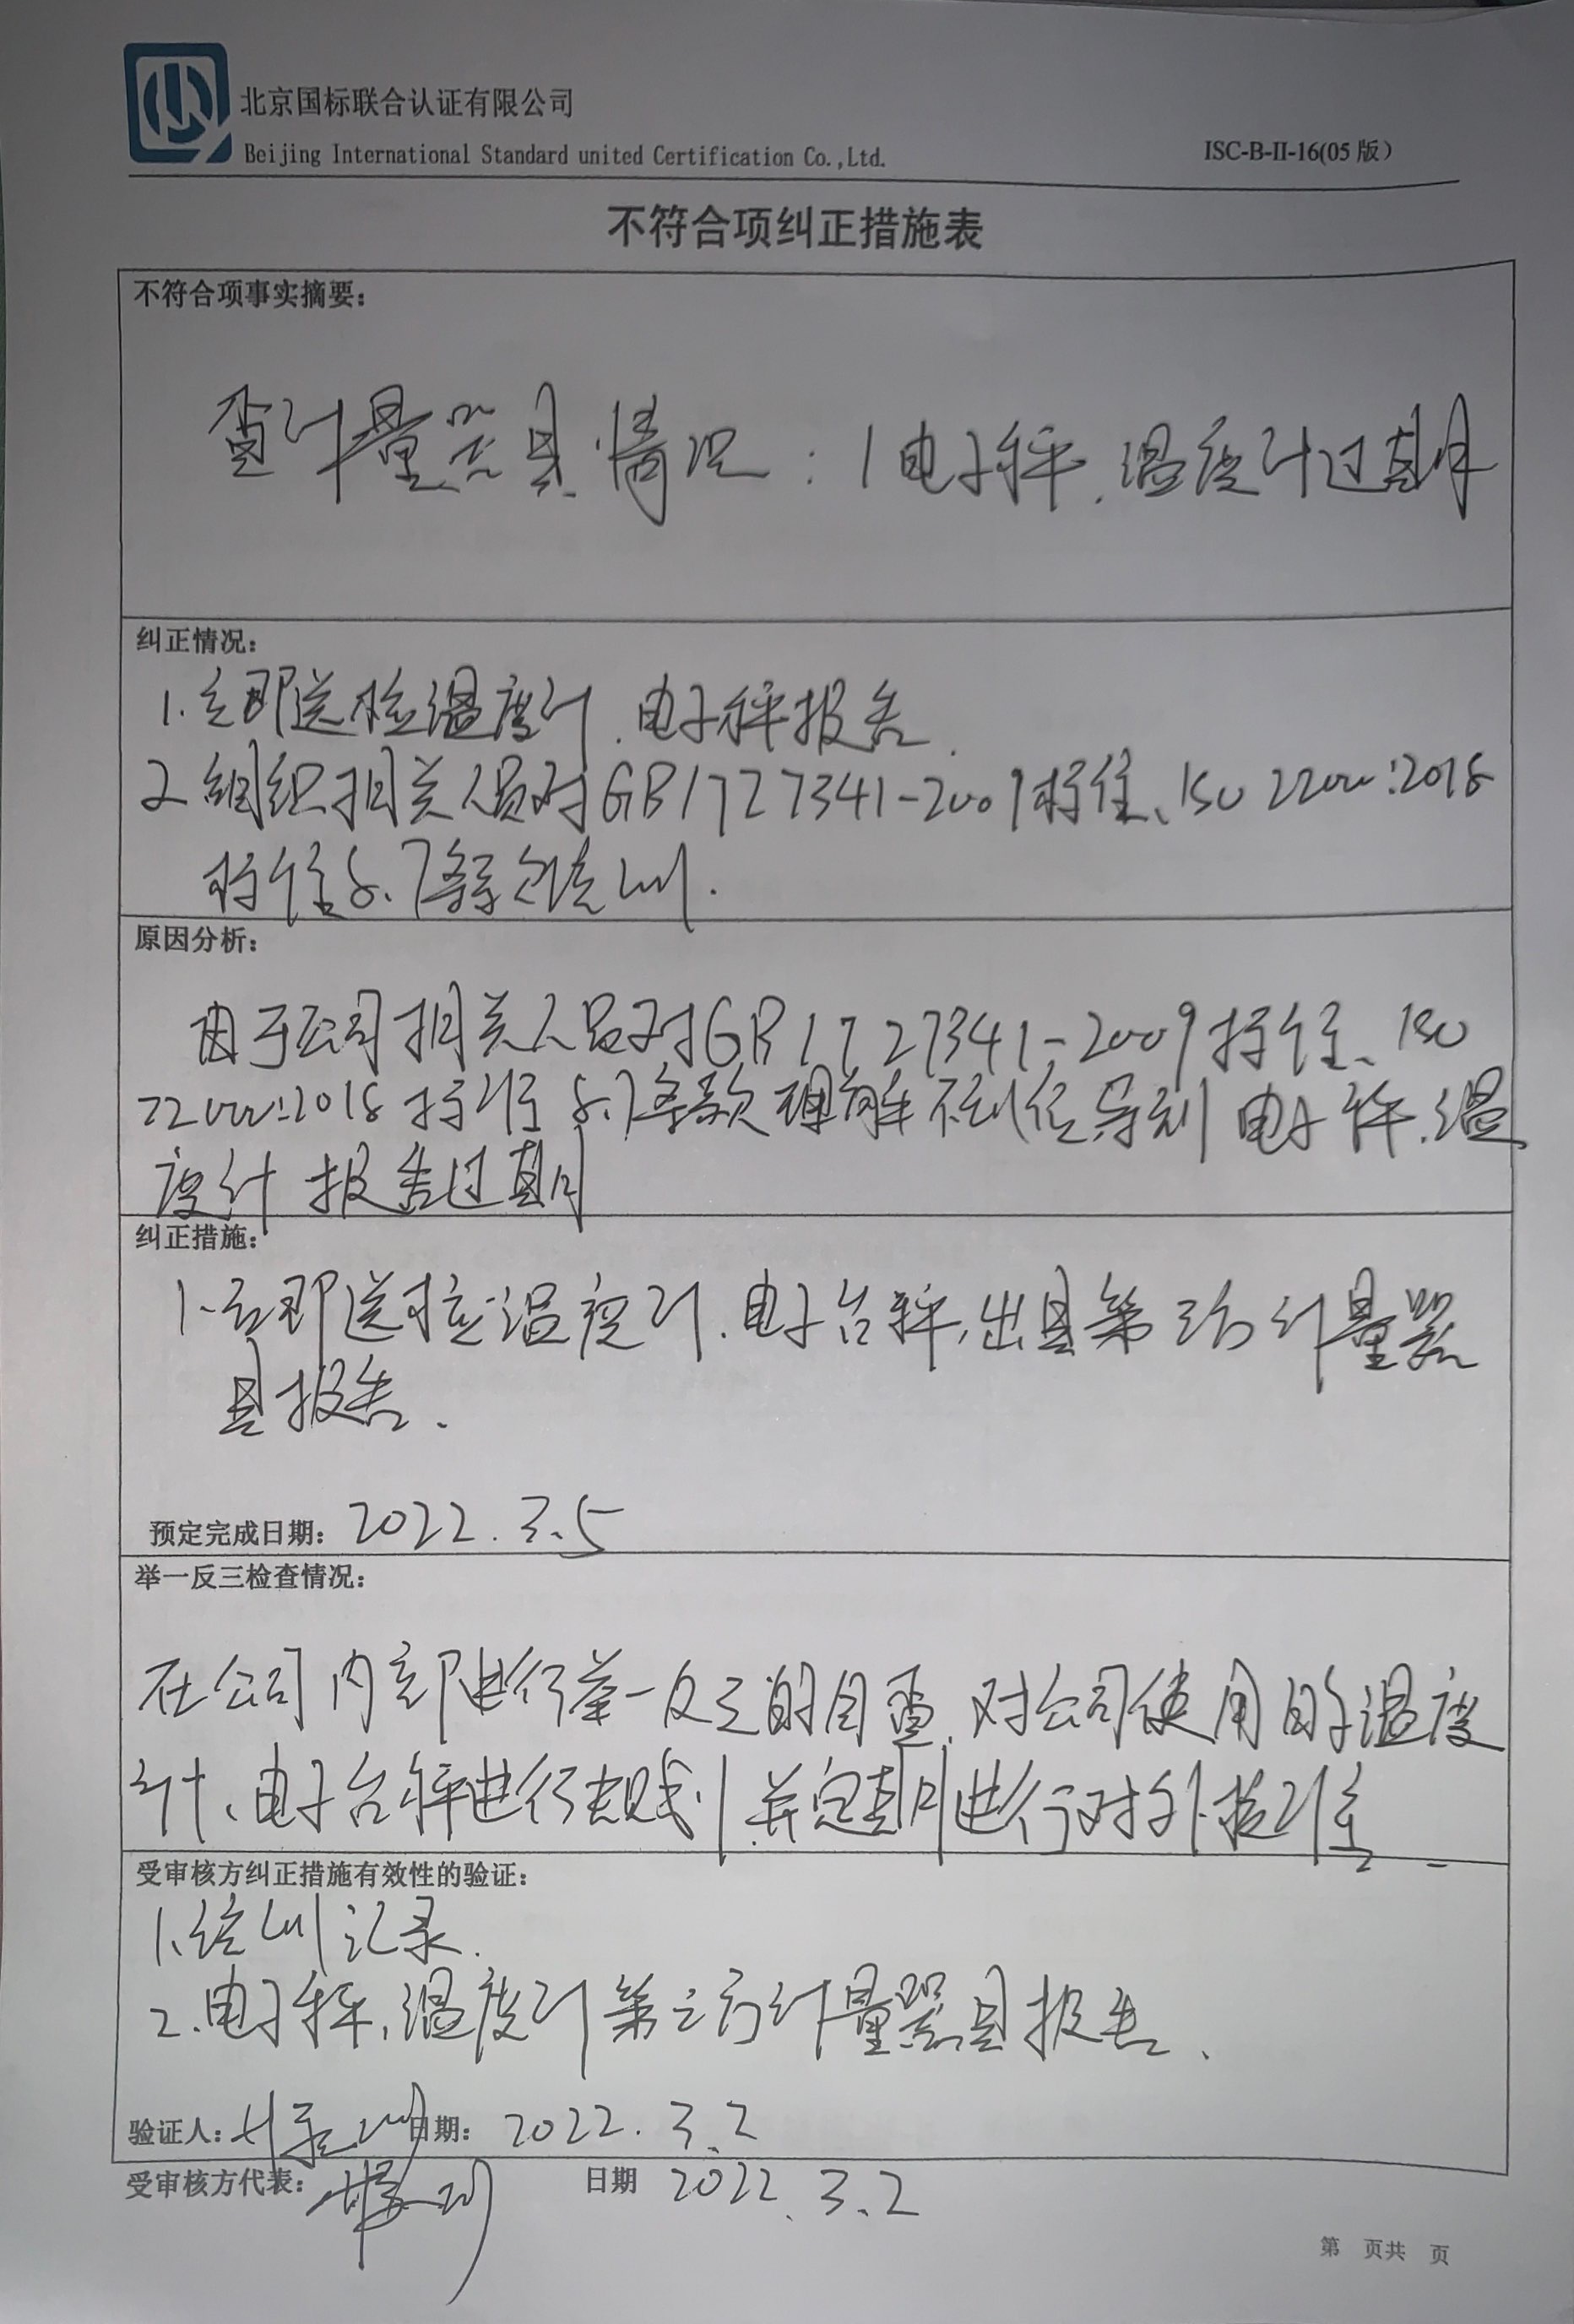 北京国标联合认证有限公司
Beijing International Standard united Certification Co.,Ltd.
ISC-B-II-16(05 版)
不符合项纠正措施表
不符合项事实摘要：
查计量器具情况：1电子秤、温度计过期
纠正情况：
1.立即送检温度计、电子秤报告.
2.组织相关人员对GB/T27341-2009标准、ISO 22000:2018
标准8.7条款培训.
原因分析：
由于公司相关人员对GB/T27341-2009标准、ISO
22000:2018标准8.7条款理解不到位导致电子秤、温
度计报告过期
纠正措施：
1.立即送检温度计、电子台秤,出具第三方计量器
具报告.
预定完成日期：2022.3.5
举一反三检查情况：
在公司内部进行举一反三的自查,对公司使用的温度
计、电子台秤进行规划并定期进行对外校准
受审核方纠正措施有效性的验证：
1、培训记录.
2.电子秤、温度计第三方计量器具报告.
验证人： 日期： 2022.3.2
受审核方代表： 日期 2022.3.2
第 页共 页